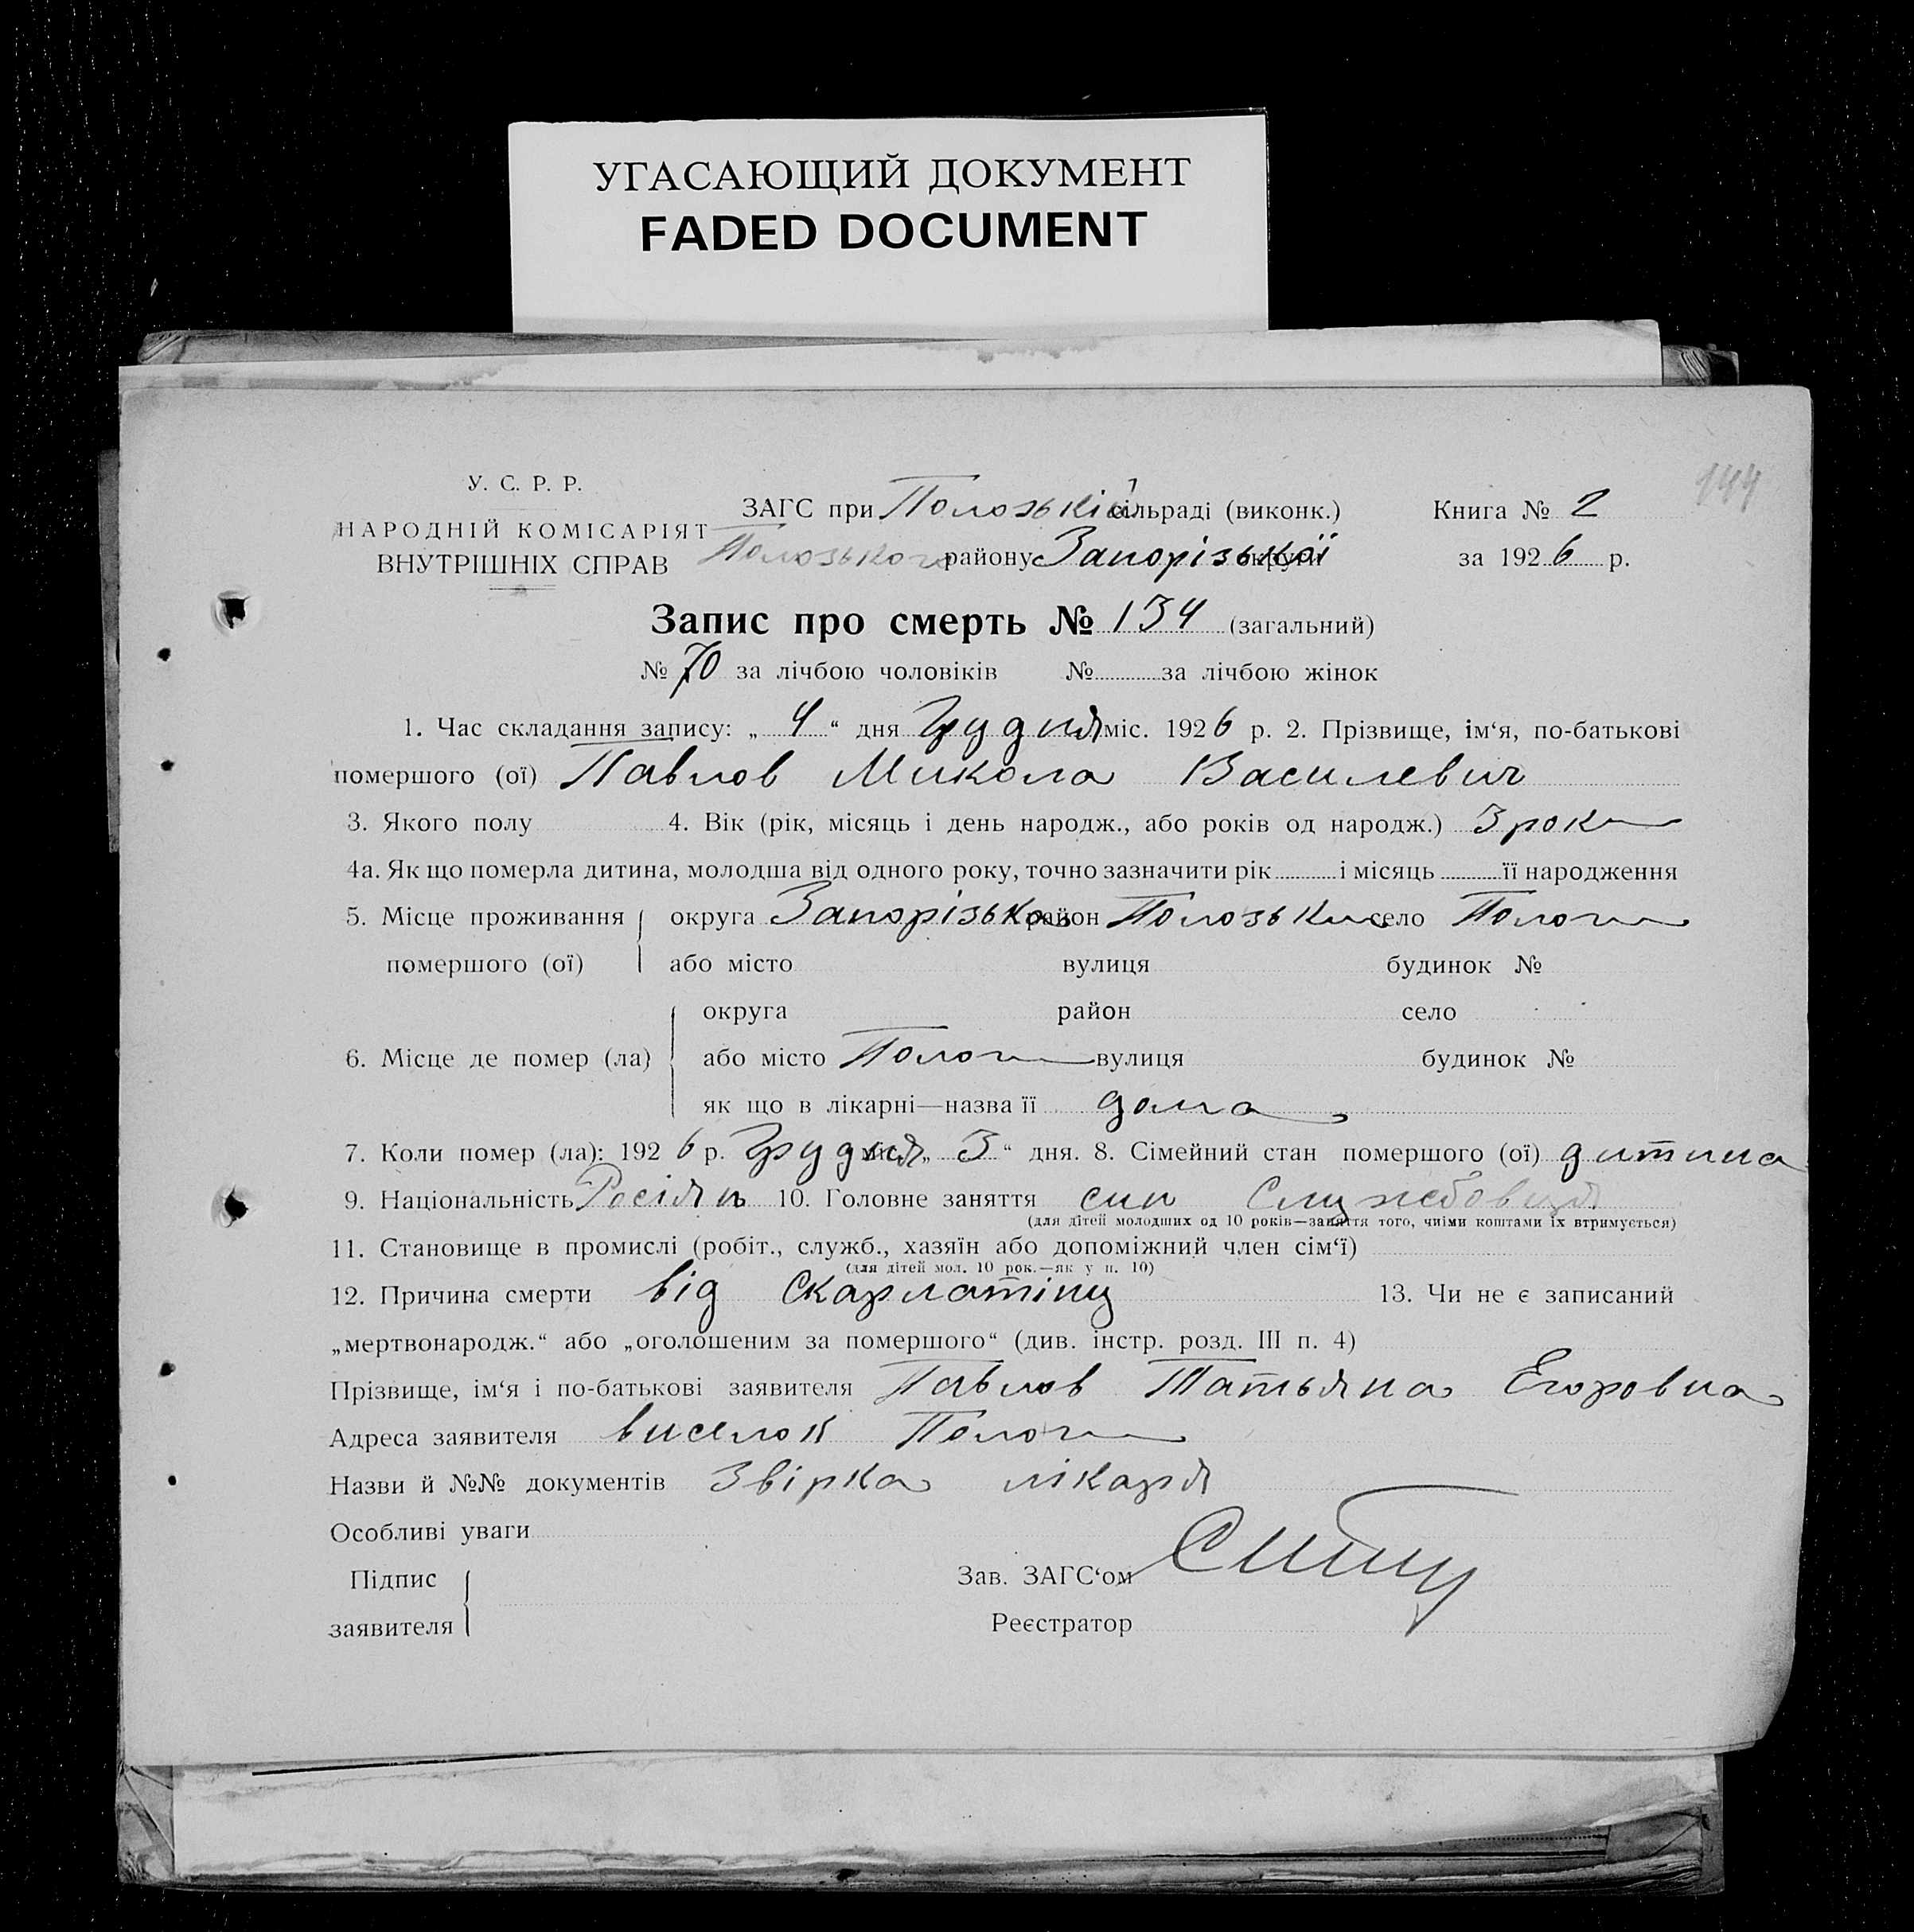 УГАСАЮЩИЙ ДОКУМЕНТ
FADED DOCUMENT
144
У. С. Р. Р.
НАРОДНІЙ КОМІСАРІЯТ
ВНУТРІШНІХ СПРАВ
ЗАГС при Полозькій сільраді (виконк.)
Полозького району Запорізької округи
Книга № 2
за 1926 р.
Запис про смерть № 134 (загальний)
№ 70 за лічбою чоловіків № за лічбою жінок
1. Час складання запису: „ 4 “ дня Грудня міс. 1926 р. 2. Прізвище, ім‘я, по-батькові
помершого (ої) Павлов Микола Василевич
3. Якого полу 4. Вік (рік, місяць і день народж., або років од народж.) 3 роки
4а. Як що померла дитина, молодша від одного року, точно зазначити рік і місяць її народження
5. Місце проживання помершого (ої) округа Запорізька район Полозьки село Пологи
або місто вулиця будинок №
6. Місце де помер (ла) округа район село
або місто Пологи вулиця будинок №
як що в лікарні—назва її дома
7. Коли помер (ла): 1926 р. Грудня міс. „ 3 “ дня. 8. Сімейний стан помершого (ої) дитина
9. Національність Росіян 10. Головне заняття син Службовця
(для дітей молодших од 10 років—заняття того, чиїми коштами їх втримується)
11. Становище в промислі (робіт., служб., хазяїн або допоміжний член сім‘ї)
(для дітей мол. 10 рок.—як у п. 10)
12. Причина смерти від Скарлатіни 13. Чи не є записаний
„мертвонародж.“ або „оголошеним за помершого“ (див. інстр. розд. III п. 4)
Прізвище, ім‘я і по-батькові заявителя Павлов Татьяна Егоровна
Адреса заявителя виселок Пологи
Назви й №№ документів Звірка лікаря
Особливі уваги
Підпис заявителя
Зав. ЗАГС‘ом
Реєстратор